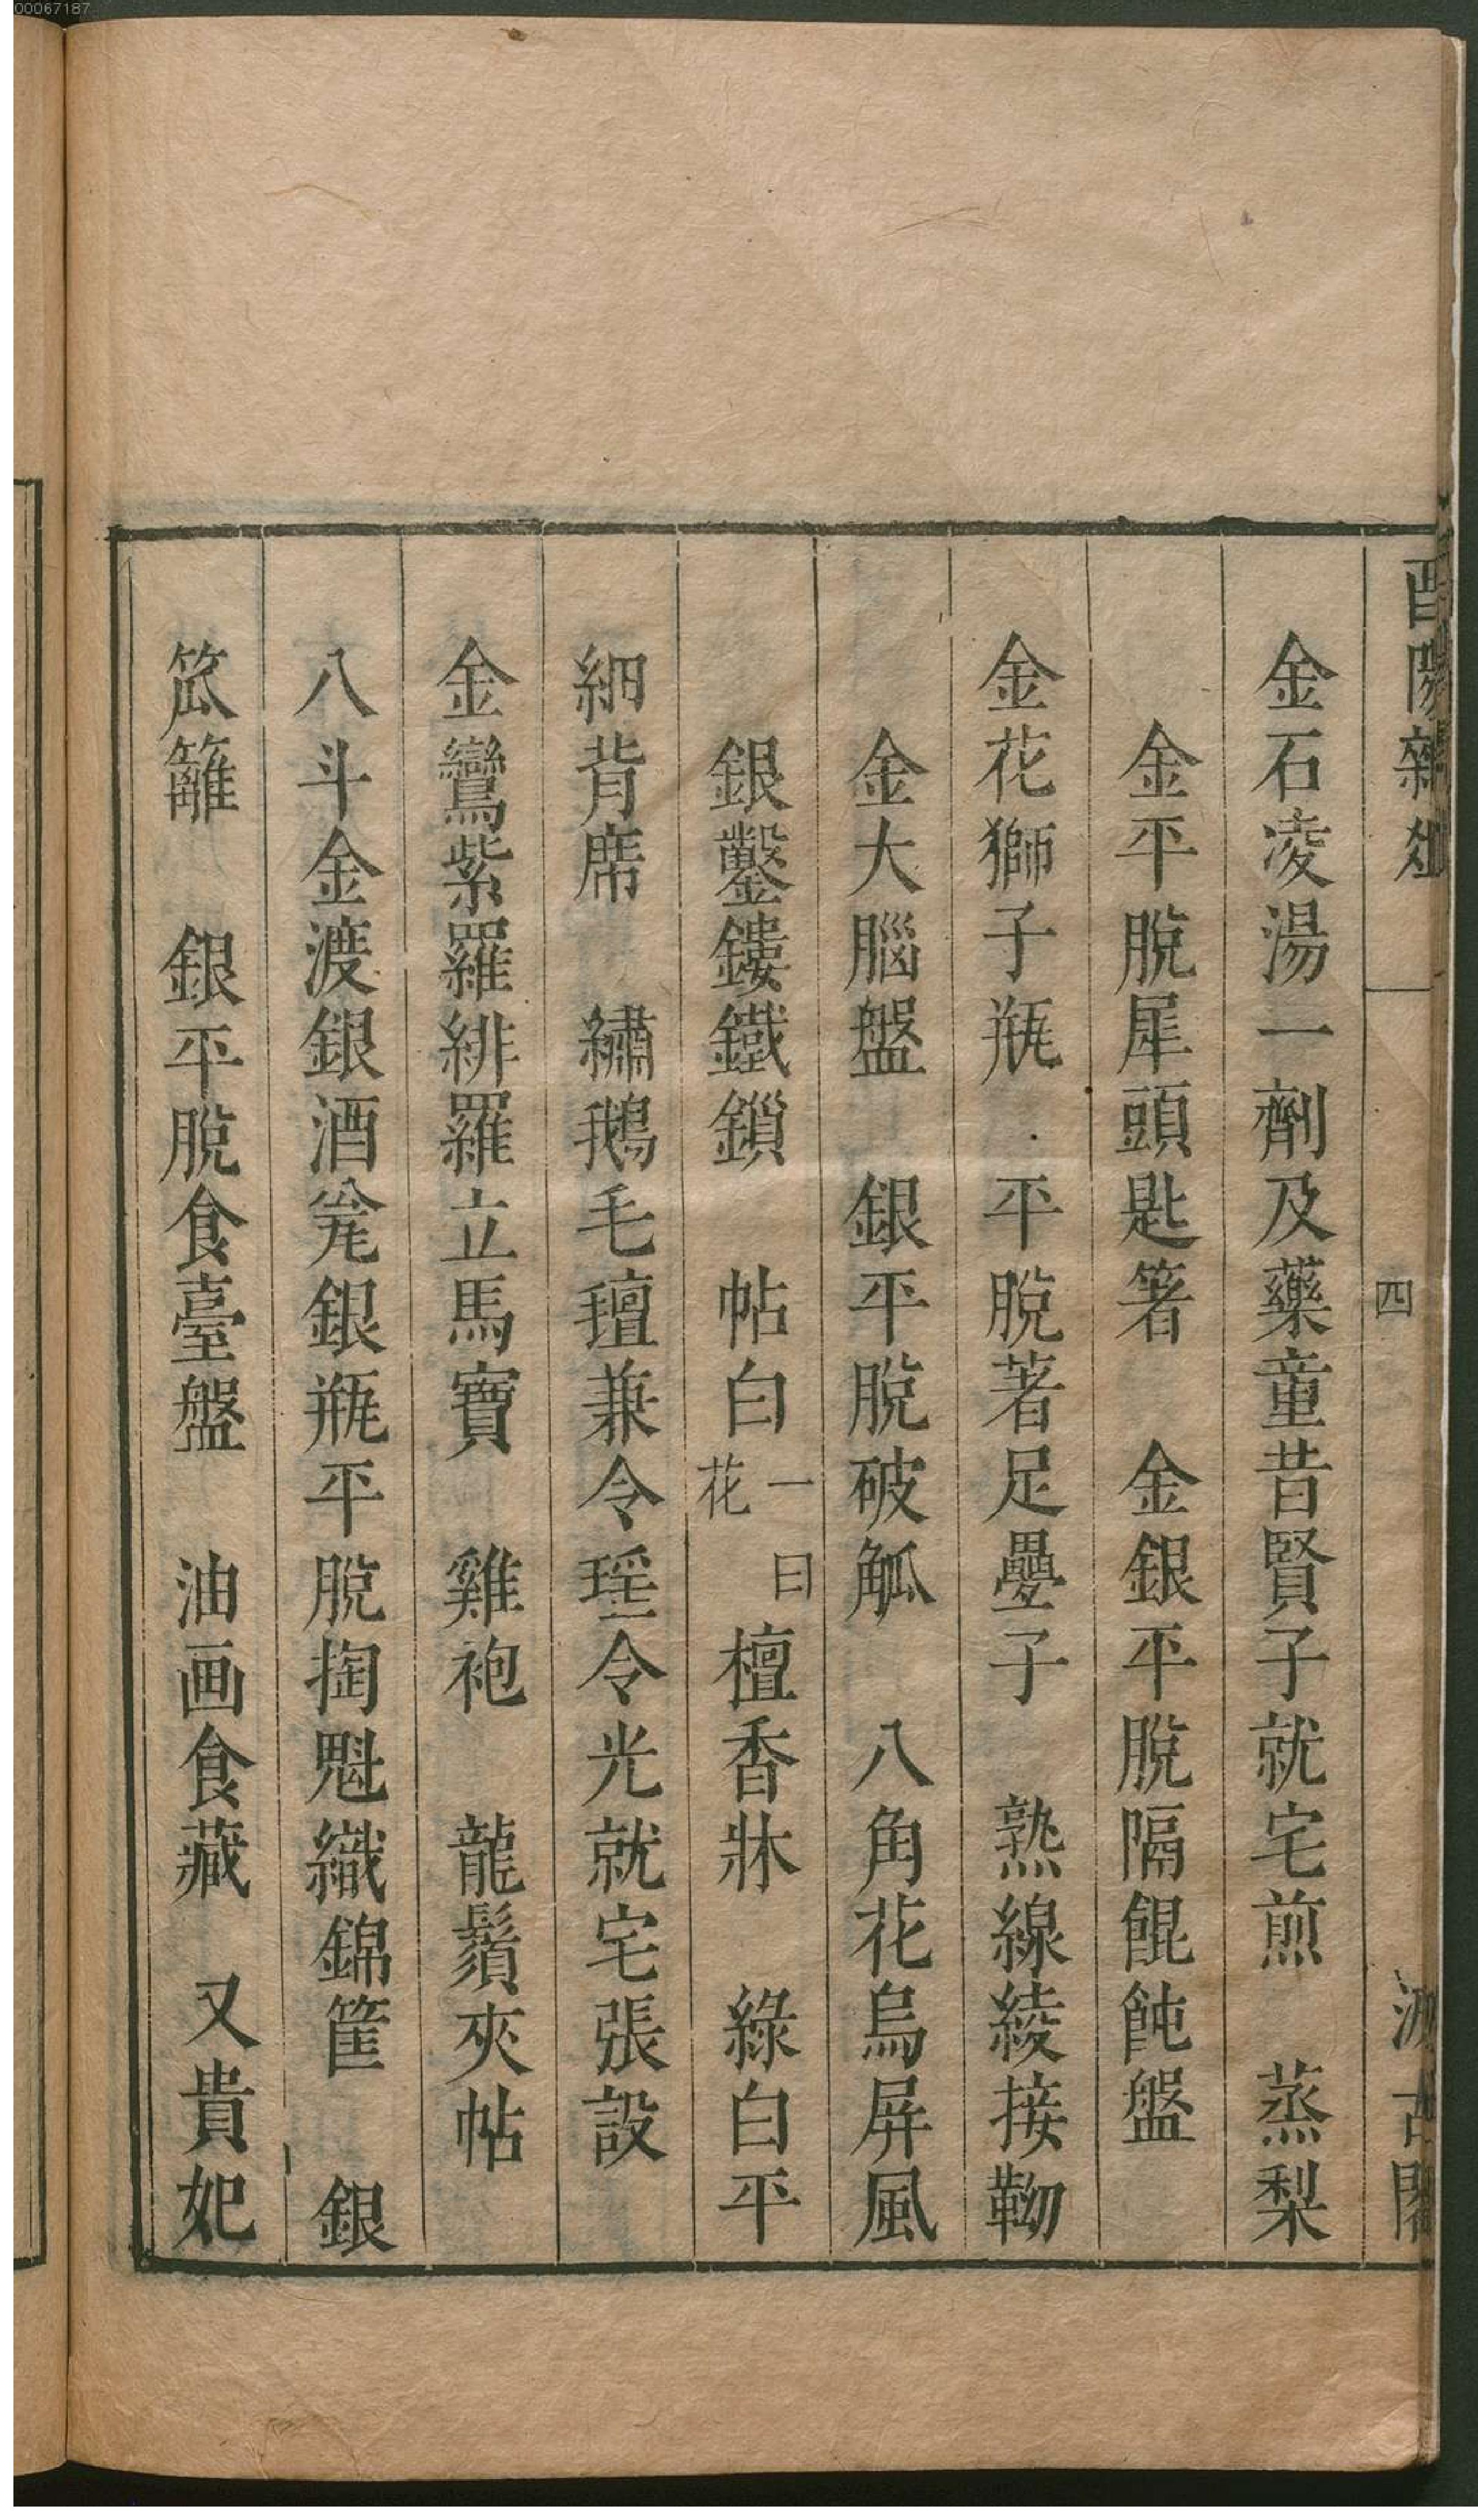 00067187
酉陽雜俎 四 汲古閣
金石凌湯一劑及藥童昔賢子就宅煎 蒸梨
金平脫犀頭匙箸 金銀平脫隔餛飩盤
金花獅子瓶 平脫著足疊子 熟線綾接靿
金大腦盤 銀平脫破觚 八角花烏屏風
銀鑿鏤鐵鎖 帖白一曰花檀香牀 綠白平
細背席 繡鵝毛氊兼令瑤令光就宅張設
金鸞紫羅緋羅立馬寶 雞袍 龍鬚夾帖
八斗金渡銀酒瓮銀瓶平脫掏魁織錦筐 銀
笊籬 銀平脫食臺盤 油画食藏 又貴妃